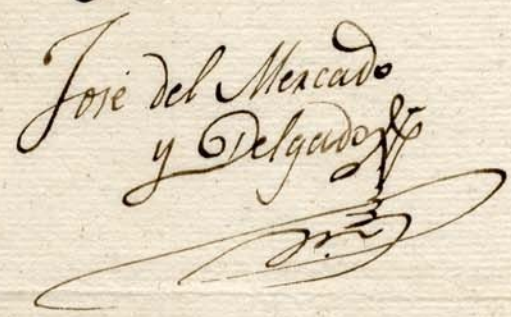 José del Mercado
y Delgado